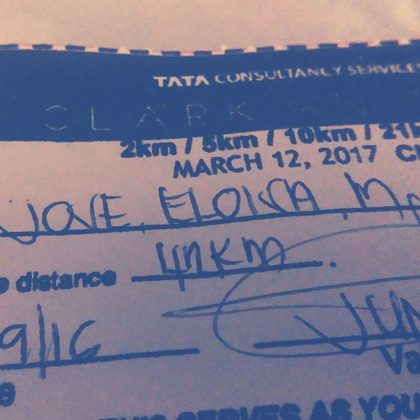 TATA CONSULTANCY SERVICES
CLARK
2km / 5km / 10km / 21
MARCH 12, 2017 C
JOVE ELOISA M
distance 42KM
9/16 JUN
Va
THIS SERVES AS YOU